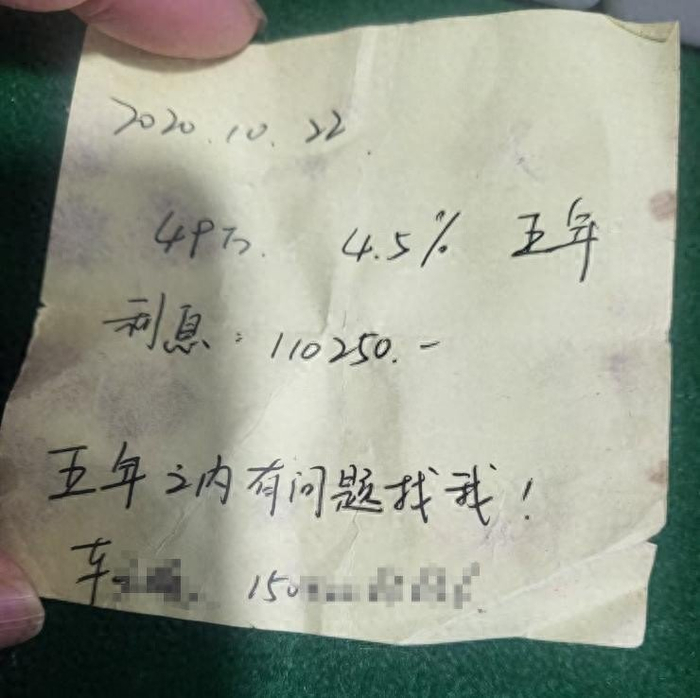 2020.10.22.
49万. 4.5% 五年
利息: 110250.-
五年之内有问题找我!
车 150